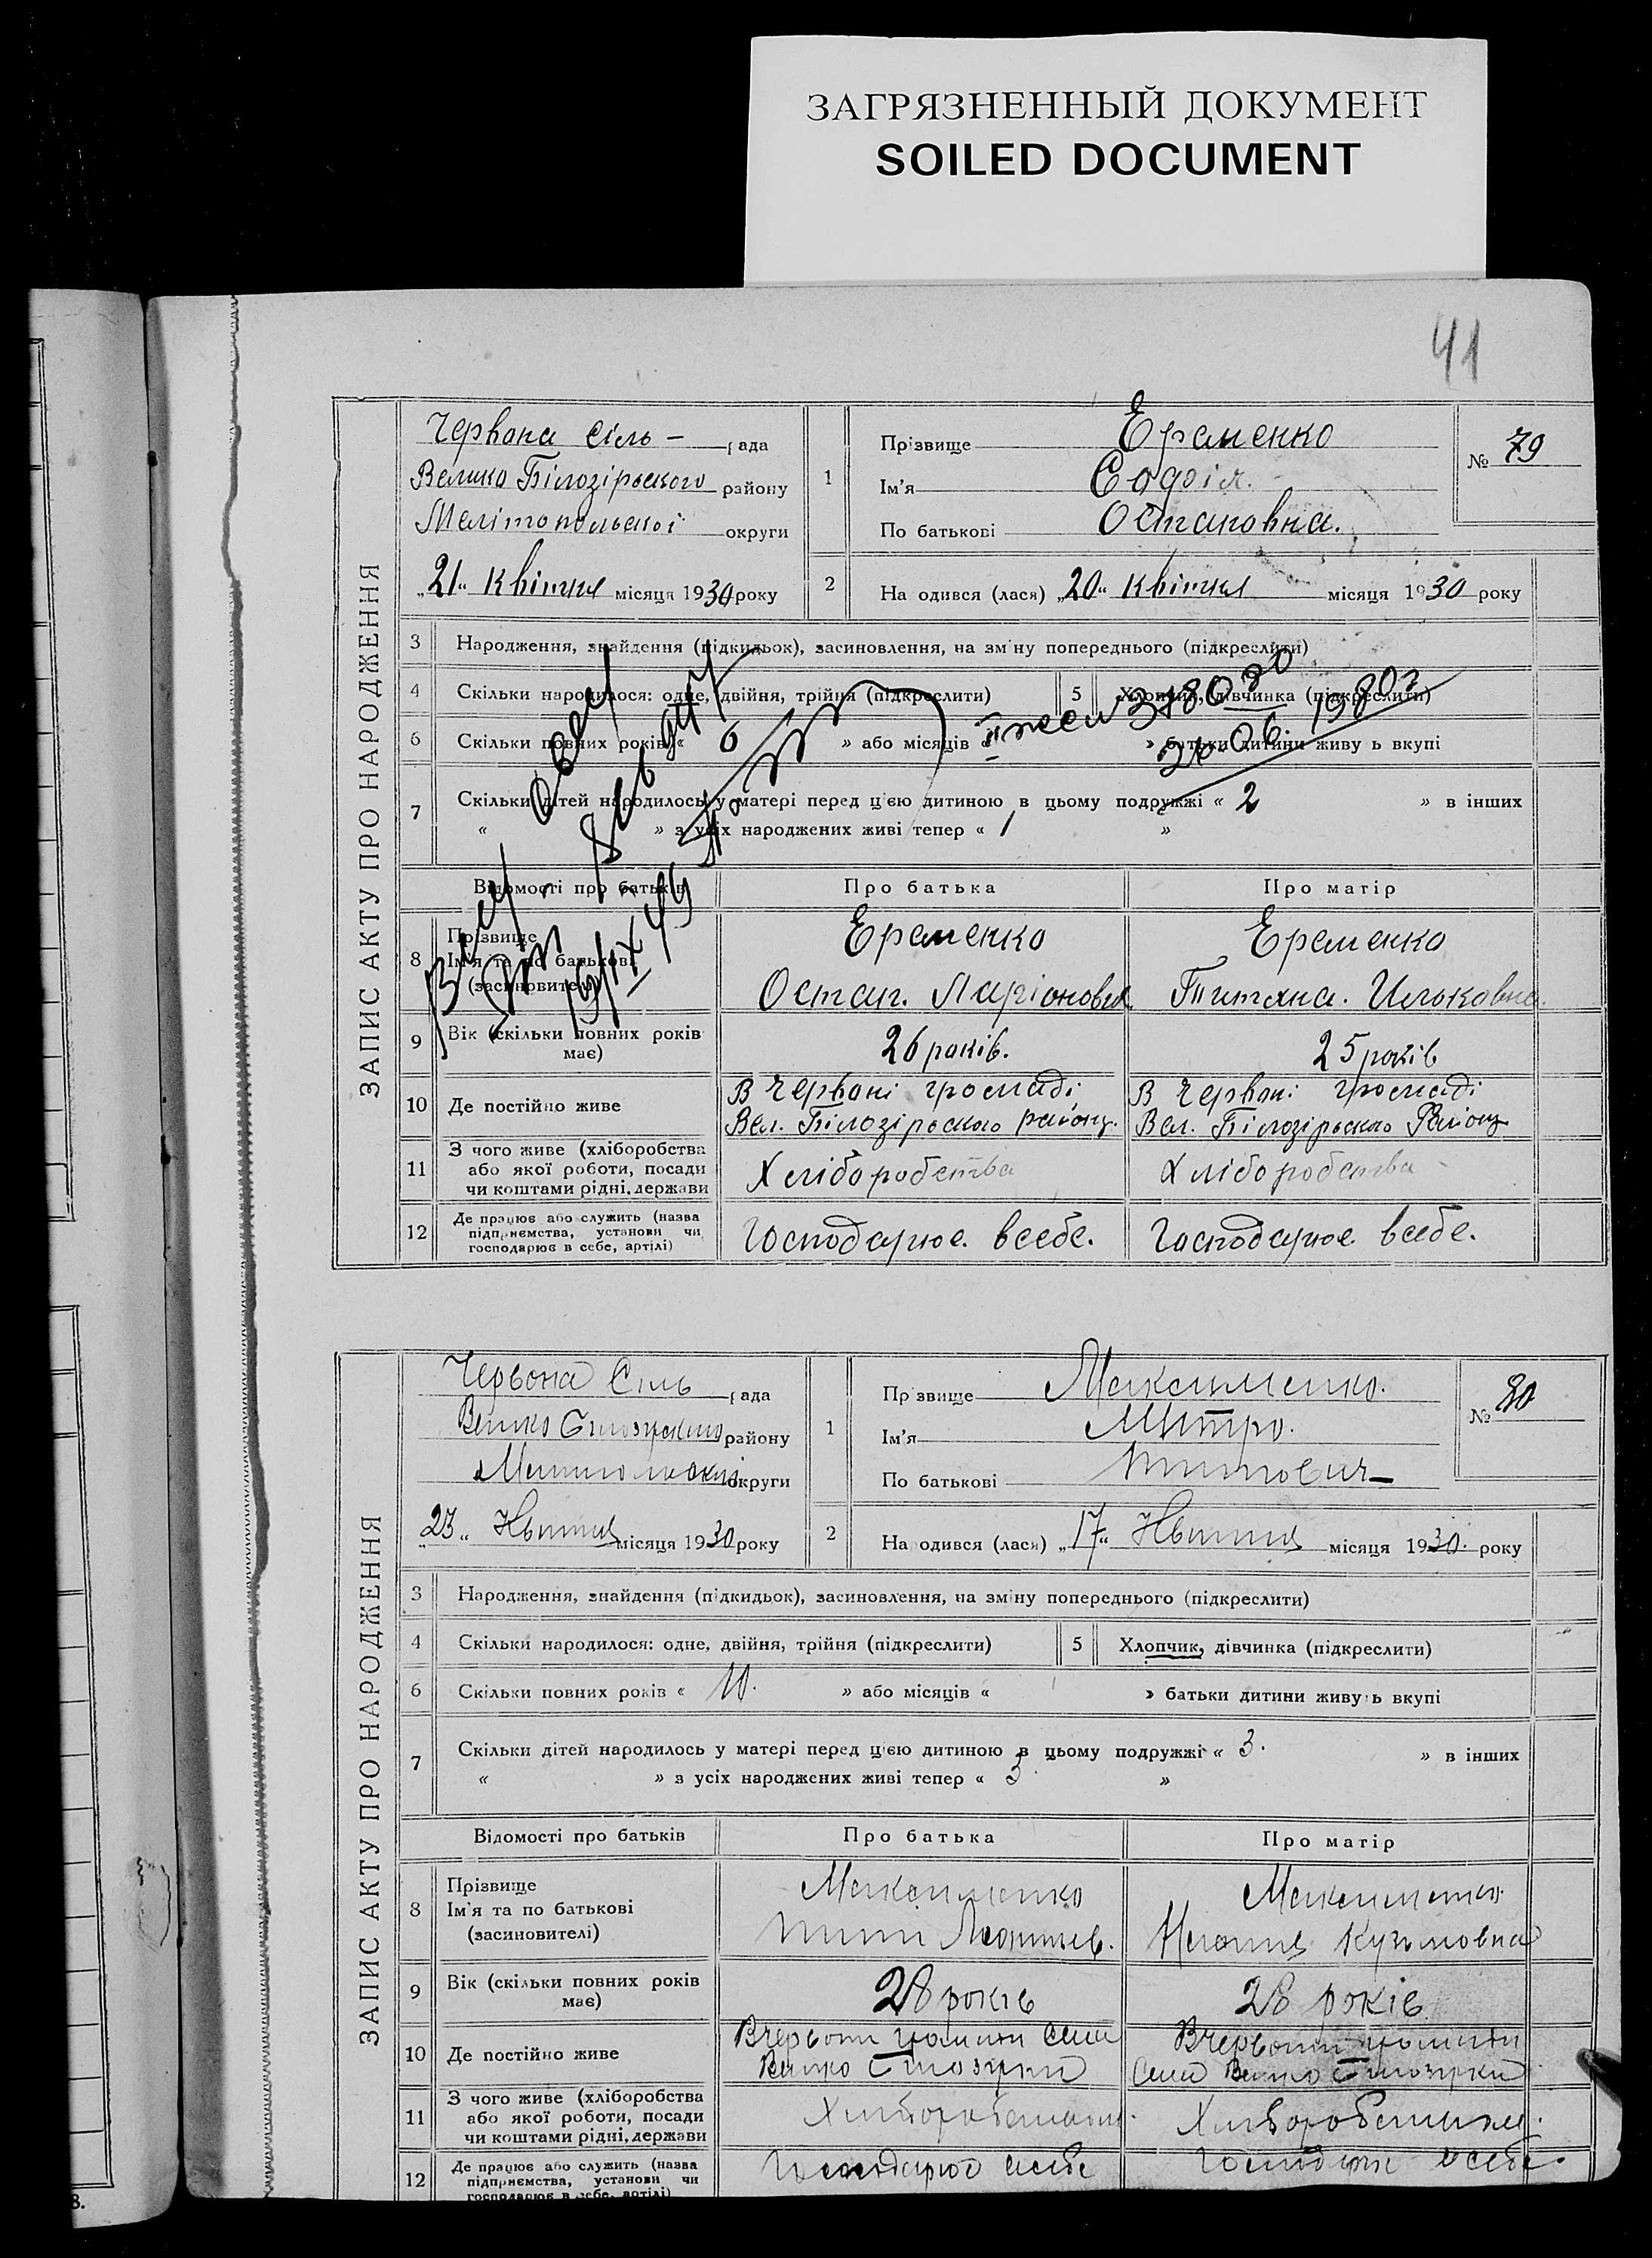 ЗАГРЯЗНЕННЫЙ ДОКУМЕНТ
SOILED DOCUMENT
41
ЗАПИС АКТУ ПРО НАРОДЖЕННЯ
Червона сіль – рада
Велико Білозірського району
Мелітопольської округи
„21“ квітня місяця 1930 року
1
Прізвище Еременко
Ім'я Софія.
По батькові Остаповна.
№ 79
2
На одився (лася) „20“ квітня місяця 1930 року
3 Народження, знайдення (підкидьок), засиновлення, на зміну попереднього (підкреслити)
4 Скільки народилося: одне, двійня, трійня (підкреслити)
5 Хлопчик, дівчинка (підкреслити)
6 Скільки повних років « 6 » або місяців « » батьки дитини живуть вкупі
24.06. 1980г
7 Скільки дітей народилось у матері перед цією дитиною в цьому подружжі « 2 » в інших
« » з усіх народжених живі тепер « 1 »
19/IX 49
Відомості про батьків Про батька Про матір
8 Прізвище
Ім'я та по батькові
(засиновителі)
Еременко
Остап. Ларіонович
Еременко
Титяна. Ильковна.
9 Вік (скільки повних років
має)
26 років.
25 років
10 Де постійно живе
В Червоні громаді
Вел. Білозірського району.
В Червоні громаді
Вел. Білозірського Району
11 З чого живе (хліборобства
або якої роботи, посади
чи коштами рідні, держави
Хліборобства
Хліборобства
12 Де працює або служить (назва
підприємства, установи чи
господарює в себе, артілі)
Господарює всебе.
Господарює всебе.
ЗАПИС АКТУ ПРО НАРОДЖЕННЯ
Червона Сіль рада
району
округи
„23“ Квітня місяця 1930 року
1
Прізвище Максименко.
Ім'я Митро.
По батькові Титович
№ 80
2
На одився (лася) „17“ Квітня місяця 1930. року
3 Народження, знайдення (підкидьок), засиновлення, на зміну попереднього (підкреслити)
4 Скільки народилося: одне, двійня, трійня (підкреслити)
5 Хлопчик, дівчинка (підкреслити)
6 Скільки повних років « 10. » або місяців « » батьки дитини живуть вкупі
7 Скільки дітей народилось у матері перед цією дитиною в цьому подружжі « 3. » в інших
« » з усіх народжених живі тепер « 3 »
Відомості про батьків Про батька Про матір
8 Прізвище
Ім'я та по батькові
(засиновителі)
Максименко
Тит
Максименко
Кузьмовна
9 Вік (скільки повних років
має)
28 років
28 років
10 Де постійно живе
11 З чого живе (хліборобства
або якої роботи, посади
чи коштами рідні, держави
12 Де працює або служить (назва
підприємства, установи чи
господарює в себе, артілі)
8.